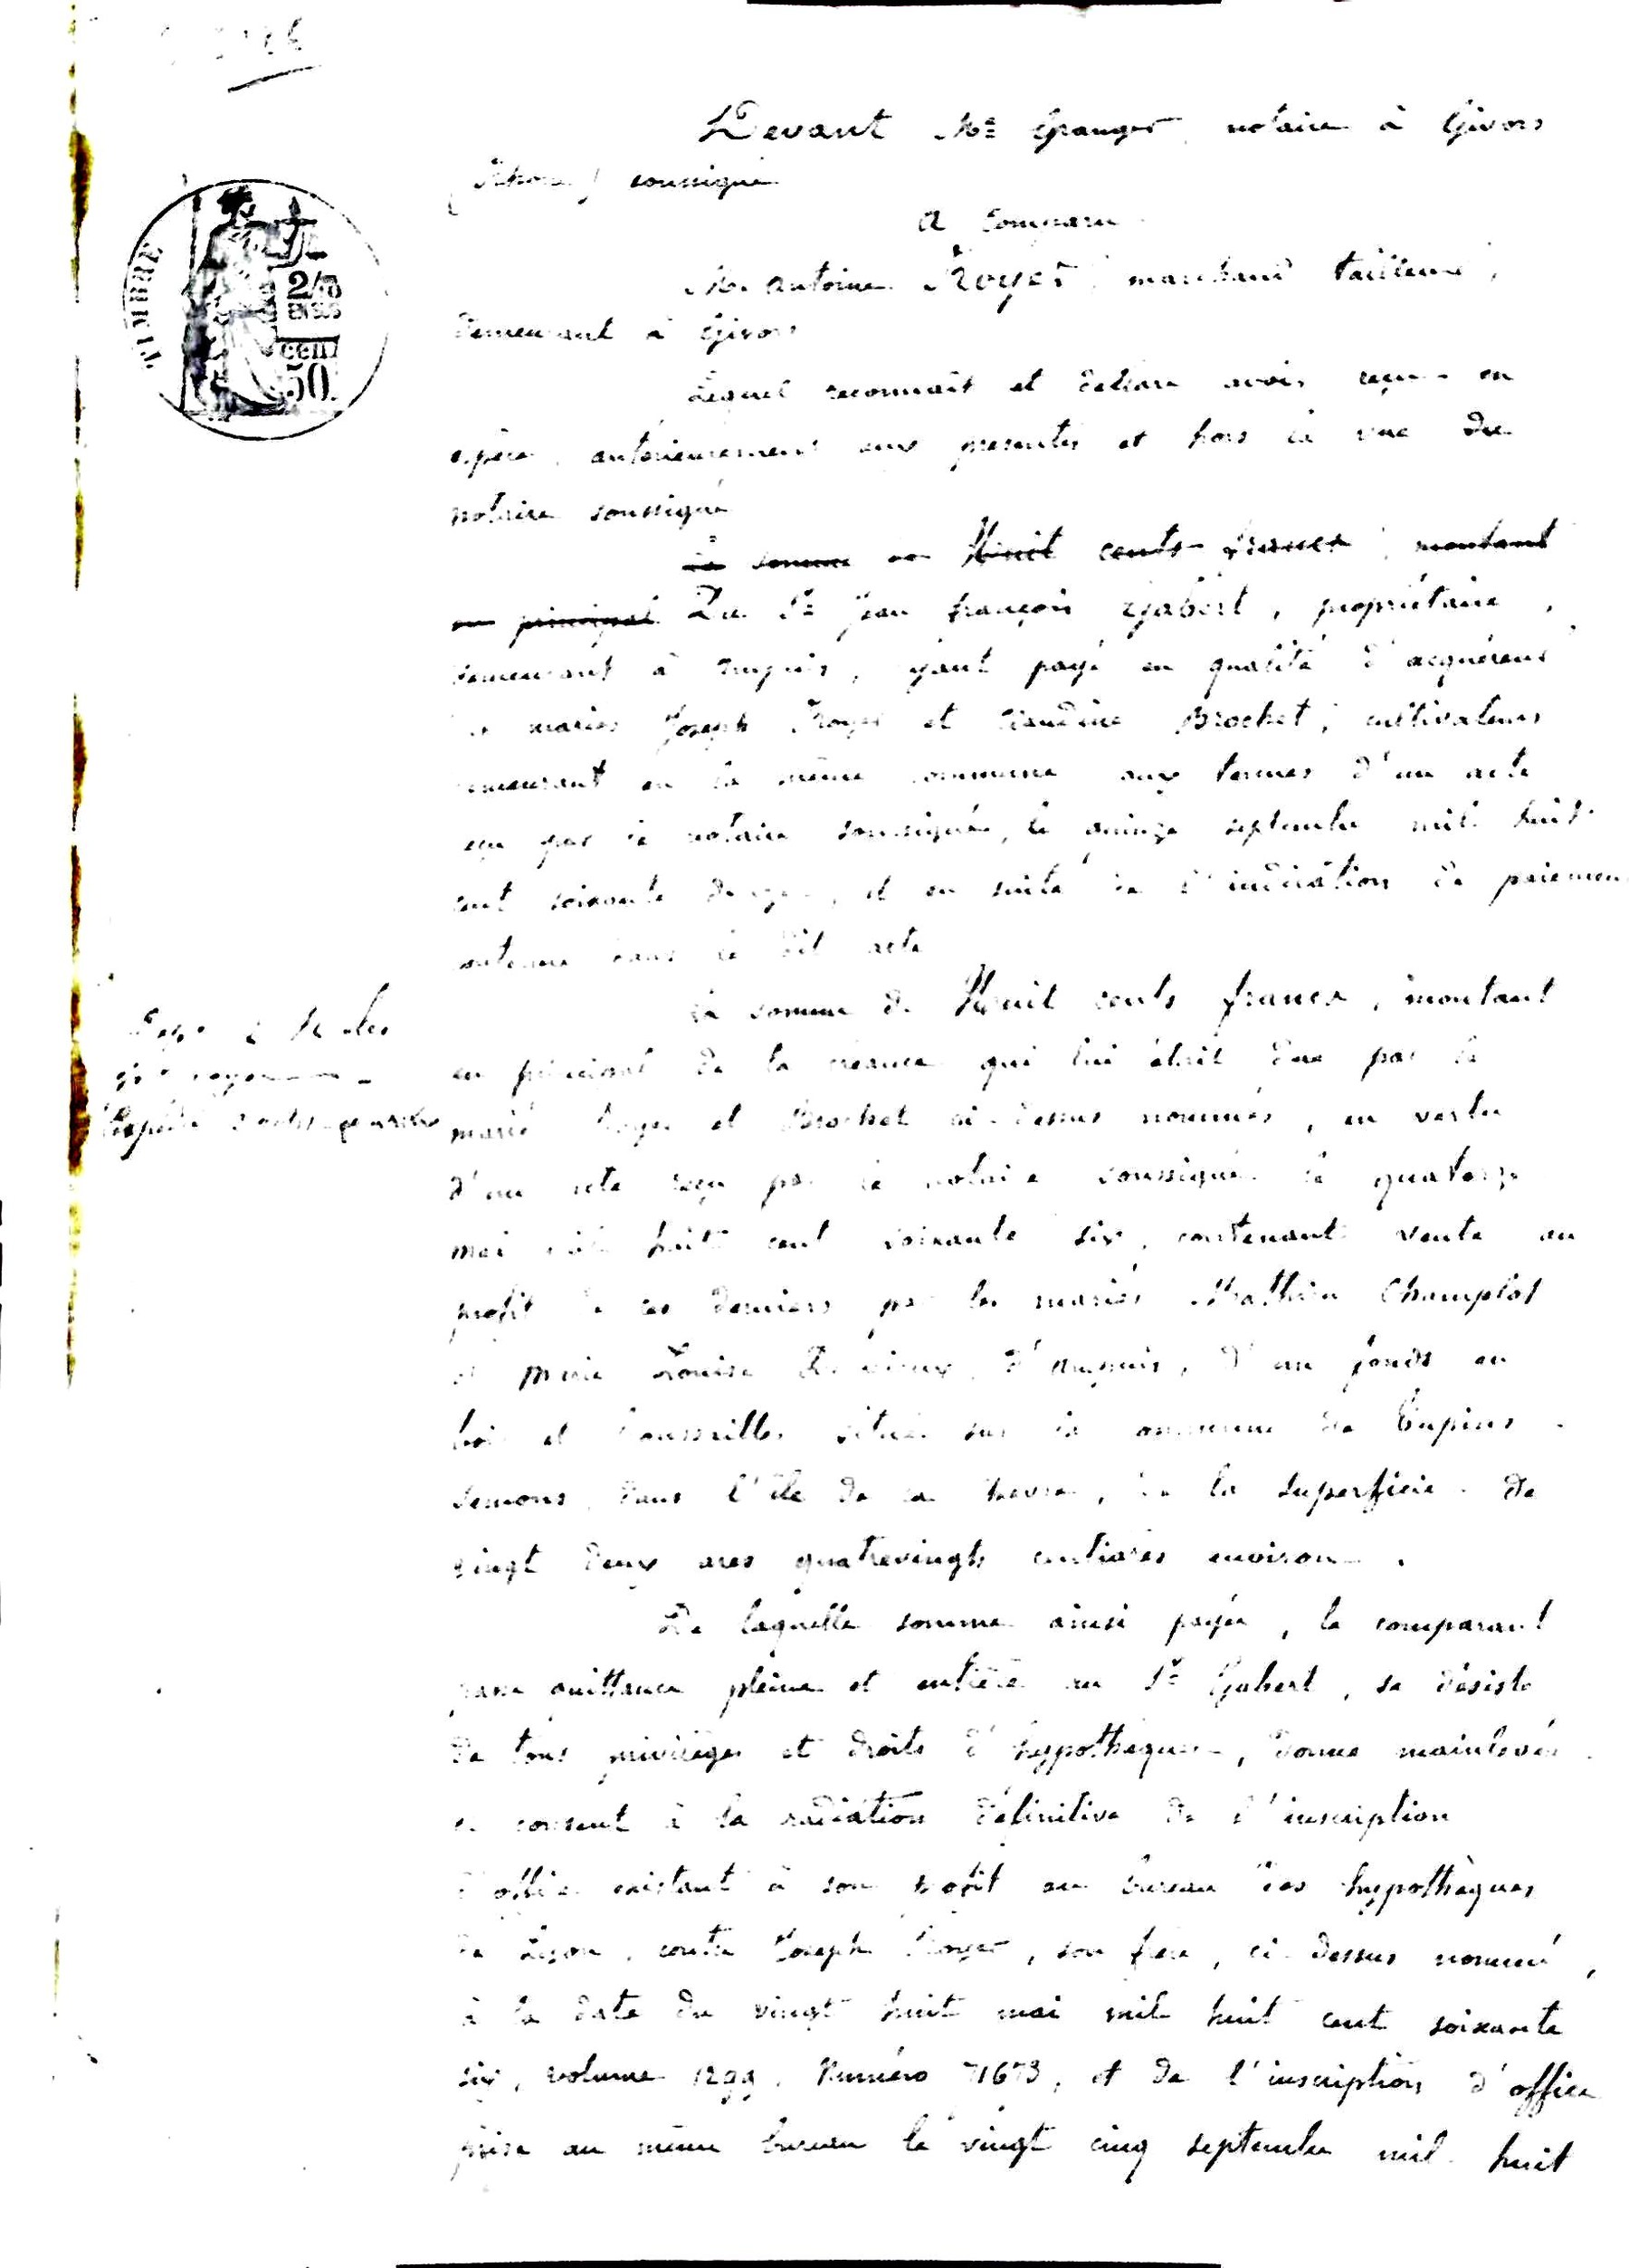 Devant Me Granger notaire à Givors
(Rhône) soussigné
A Comparu
M. Antoine Royer, marchand tailleur,
demeurant à Givors
Lequel reconnaît et déclare avoir reçu en
espèce, antérieurement aux présentes et hors la vue du
notaire soussigné
la somme de Huit cents francs, montant
en principal Du Sr Jean françois Gabert, propriétaire,
demeurant à Ampuis, ayant payé en qualité d'acquéreur
des mariés Joseph Royer et Claudine Brochet, cultivateurs
demeurant en la même commune aux termes d'un acte
reçu par le notaire soussigné, le quinze septembre mil huit
cent soixante, et en suite de l'indication de paiement
contenue dans le dit acte
la somme de Huit cents francs, montant
en principal de la créance qui lui était due par les
mariés Royer et Brochet ci-dessus nommés, en vertu
d'un acte reçu par le notaire soussigné le quatorze
mai mil huit cent soixante six, contenant vente au
profit de ces derniers par les mariés Mathieu Champlot
et Marie Louise, d'Ampuis, d'un fonds en
bois et broussailles situé sur la commune de Tupins
Semons, dans l'île de la chèvre, de la superficie de
vingt deux ares quatrevingts centiares environ.
De laquelle somme ainsi payée, le comparant
passe quittance pleine et entière au Sr Gabert, se désiste
de tous privilèges et droits d'hypothèques, donne mainlevée
et consent à la radiation définitive de l'inscription
d'office existant à son profit au bureau des hypothèques
de Lyon, contre Joseph Royer, son frère, ci-dessus nommé,
à la date du vingt huit mai mil huit cent soixante
six, volume 1299, Numéro 71673, et de l'inscription d'office
prise au même bureau le vingt cinq septembre mil huit
TIMBRE
2/10
EN SUS
50
cent